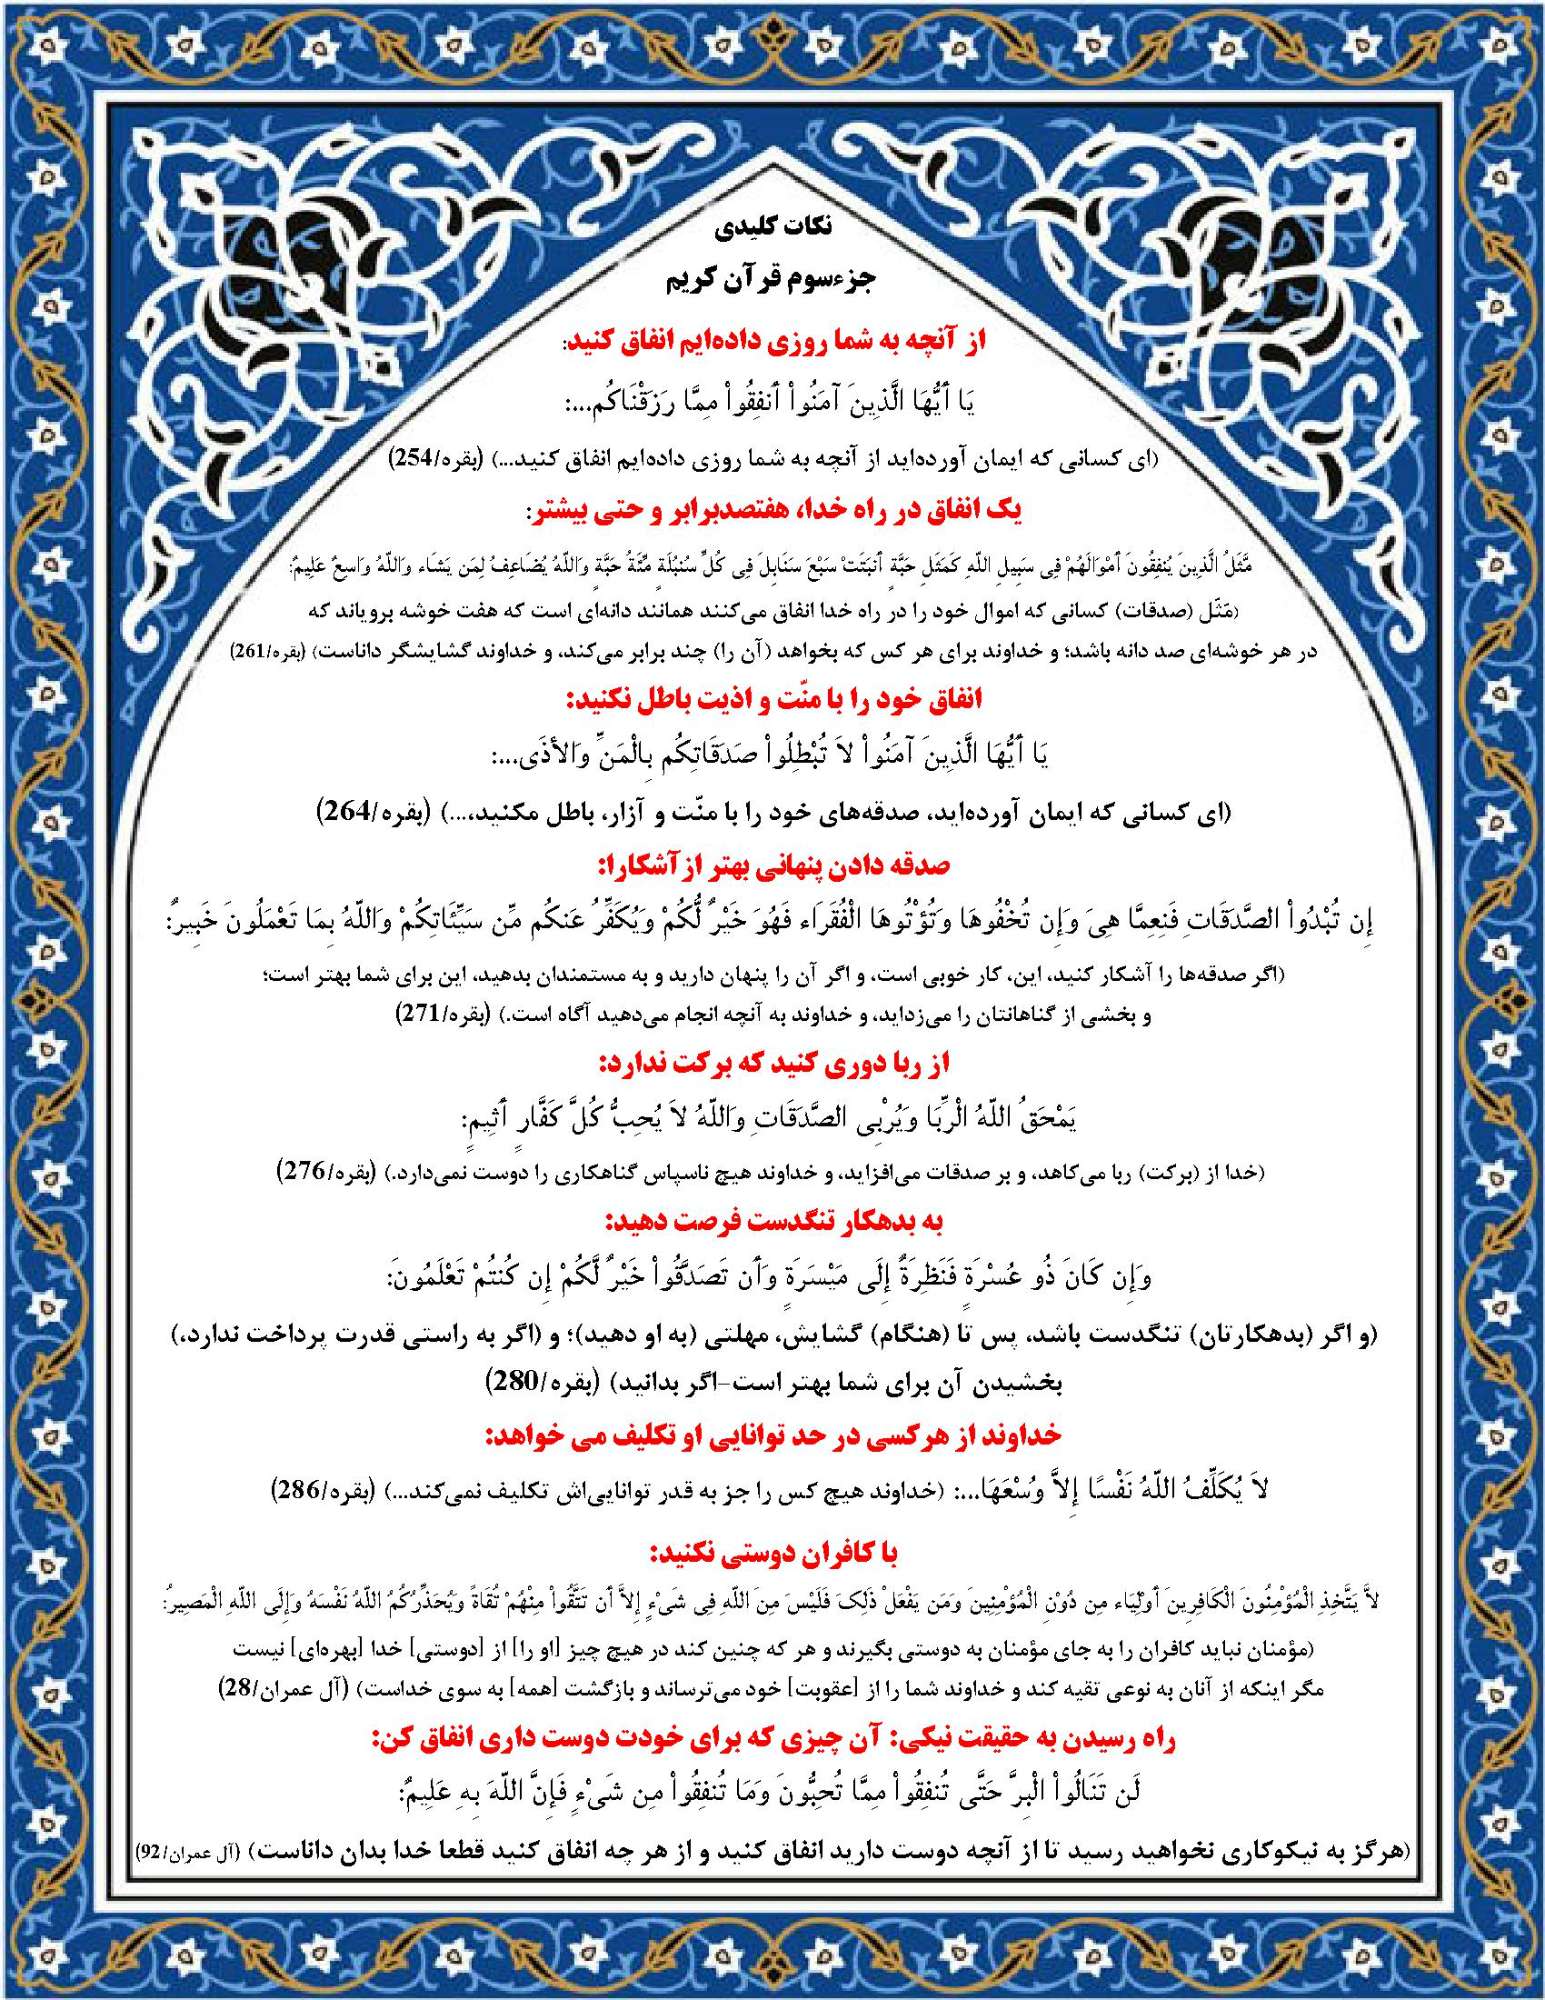 نکات کلیدی
جزءسوم قرآن کریم
از آنچه به شما روزی داده‌ایم انفاق کنید:
یَا أَیُّهَا الَّذِینَ آمَنُواْ أَنفِقُواْ مِمَّا رَزَقْنَاکُم...:
(ای کسانی که ایمان آورده‌اید از آنچه به شما روزی داده‌ایم انفاق کنید...) (بقره/254)
یک انفاق در راه خدا، هفتصدبرابر و حتی بیشتر:
مَّثَلُ الَّذِینَ یُنفِقُونَ أَمْوَالَهُمْ فِی سَبِیلِ اللّهِ کَمَثَلِ حَبَّةٍ أَنبَتَتْ سَبْعَ سَنَابِلَ فِی کُلِّ سُنبُلَةٍ مِّئَةُ حَبَّةٍ وَاللّهُ یُضَاعِفُ لِمَن یَشَاء وَاللّهُ وَاسِعٌ عَلِیمٌ:
(مَثَل (صدقات) کسانی که اموال خود را در راه خدا انفاق می‌کنند همانند دانه‌ای است که هفت خوشه برویاند که
در هر خوشه‌ای صد دانه باشد؛ و خداوند برای هر کس که بخواهد (آن را) چند برابر می‌کند، و خداوند گشایشگر داناست) (بقره/261)
انفاق خود را با منّت و اذیت باطل نکنید:
یَا أَیُّهَا الَّذِینَ آمَنُواْ لاَ تُبْطِلُواْ صَدَقَاتِکُم بِالْمَنِّ وَالأذَی...:
(ای کسانی که ایمان آورده‌اید، صدقه‌های خود را با منّت و آزار، باطل مکنید،...) (بقره/264)
صدقه دادن پنهانی بهتر ازآشکارا:
إِن تُبْدُواْ الصَّدَقَاتِ فَنِعِمَّا هِیَ وَإِن تُخْفُوهَا وَتُؤْتُوهَا الْفُقَرَاء فَهُوَ خَیْرٌ لُّکُمْ وَیُکَفِّرُ عَنکُم مِّن سَیِّئَاتِکُمْ وَاللّهُ بِمَا تَعْمَلُونَ خَبِیرٌ:
(اگر صدقه‌ها را آشکار کنید، این، کار خوبی است، و اگر آن را پنهان دارید و به مستمندان بدهید، این برای شما بهتر است؛
و بخشی از گناهانتان را می‌زداید، و خداوند به آنچه انجام می‌دهید آگاه است.) (بقره/271)
از ربا دوری کنید که برکت ندارد:
یَمْحَقُ اللّهُ الْرِّبَا وَیُرْبِی الصَّدَقَاتِ وَاللّهُ لاَ یُحِبُّ کُلَّ کَفَّارٍ أَثِیمٍ:
(خدا از (برکت) ربا می‌کاهد، و بر صدقات می‌افزاید، و خداوند هیچ ناسپاس گناهکاری را دوست نمی‌دارد.) (بقره/276)
به بدهکار تنگدست فرصت دهید:
وَإِن کَانَ ذُو عُسْرَةٍ فَنَظِرَةٌ إِلَی مَیْسَرَةٍ وَأَن تَصَدَّقُواْ خَیْرٌ لَّکُمْ إِن کُنتُمْ تَعْلَمُونَ:
(و اگر (بدهکارتان) تنگدست باشد، پس تا (هنگام) گشایش، مهلتی (به او دهید)؛ و (اگر به راستی قدرت پرداخت ندارد،)
بخشیدن آن برای شما بهتر است-اگر بدانید) (بقره/280)
خداوند از هرکسی در حد توانایی او تکلیف می خواهد:
لاَ یُکَلِّفُ اللّهُ نَفْسًا إِلاَّ وُسْعَهَا...: (خداوند هیچ کس را جز به قدر توانایی‌اش تکلیف نمی‌کند...) (بقره/286)
با کافران دوستی نکنید:
لاَّ یَتَّخِذِ الْمُؤْمِنُونَ الْکَافِرِینَ أَوْلِیَاء مِن دُوْنِ الْمُؤْمِنِینَ وَمَن یَفْعَلْ ذَلِکَ فَلَیْسَ مِنَ اللّهِ فِی شَیْءٍ إِلاَّ أَن تَتَّقُواْ مِنْهُمْ تُقَاةً وَیُحَذِّرُکُمُ اللّهُ نَفْسَهُ وَإِلَی اللّهِ الْمَصِیرُ:
(مؤمنان نباید کافران را به جای مؤمنان به دوستی بگیرند و هر که چنین کند در هیچ چیز [او را] از [دوستی] خدا [بهره‌ای] نیست
مگر اینکه از آنان به نوعی تقیه کند و خداوند شما را از [عقوبت] خود می‌ترساند و بازگشت [همه] به سوی خداست) (آل عمران/28)
راه رسیدن به حقیقت نیکی: آن چیزی که برای خودت دوست داری انفاق کن:
لَن تَنَالُواْ الْبِرَّ حَتَّی تُنفِقُواْ مِمَّا تُحِبُّونَ وَمَا تُنفِقُواْ مِن شَیْءٍ فَإِنَّ اللّهَ بِهِ عَلِیمٌ:
(هرگز به نیکوکاری نخواهید رسید تا از آنچه دوست دارید انفاق کنید و از هر چه انفاق کنید قطعا خدا بدان داناست) (آل عمران/92)